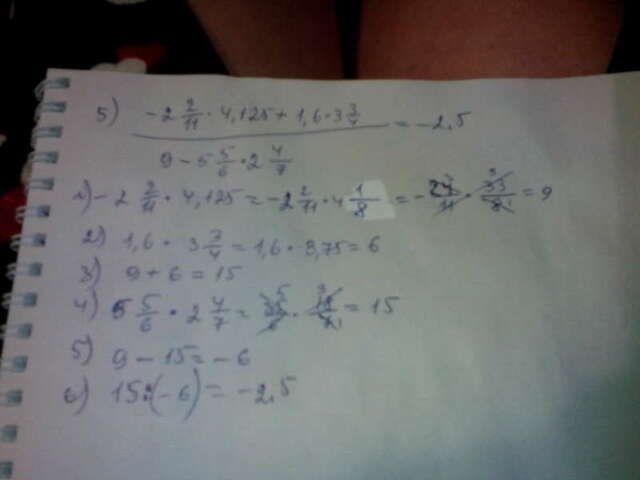 5) (-2 2/11 · 4,125 + 1,6 · 3 3/4) / (9 - 5 5/6 · 2 4/7) = -2,5
1) -2 2/11 · 4,125 = -2 2/11 · 4 1/8 = -24/11 · 33/8 = 9
2) 1,6 · 3 3/4 = 1,6 · 3,75 = 6
3) 9 + 6 = 15
4) 5 5/6 · 2 4/7 = 35/6 · 18/7 = 15
5) 9 - 15 = -6
6) 15:(-6) = -2,5